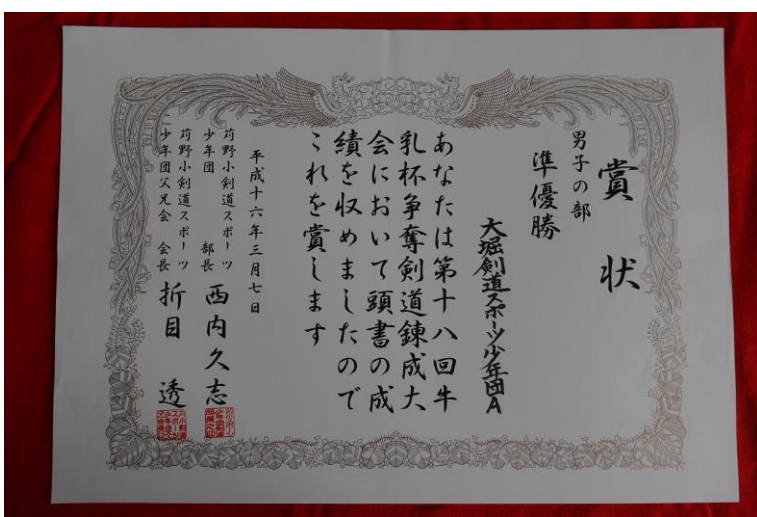 賞状
男子の部
準優勝
大堀剣道スポーツ少年団A
あなたは第十八回牛
乳杯争奪剣道錬成大
会において頭書の成
績を収めましたので
これを賞します
平成十六年三月七日
苅野小剣道スポーツ
少年団 部長 西内久志
苅野小剣道スポーツ
少年団父兄会 会長 折目 透